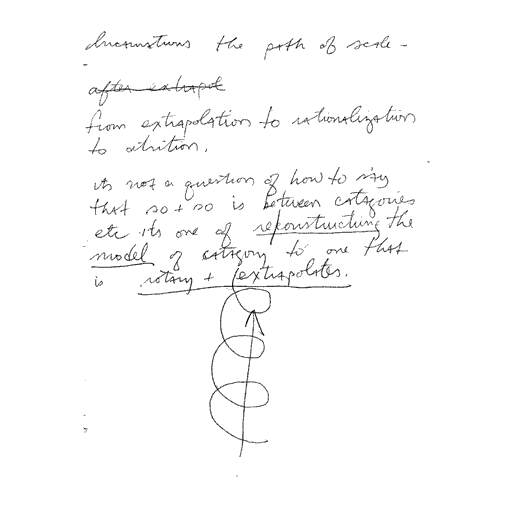 the path of scale -
after extrapol
from extrapolation to rationalization
to attrition.
its not a question of how to say
that so + so is between categories
etc its one of reconstructing the
model of category to one that
is rotary + extrapolates.